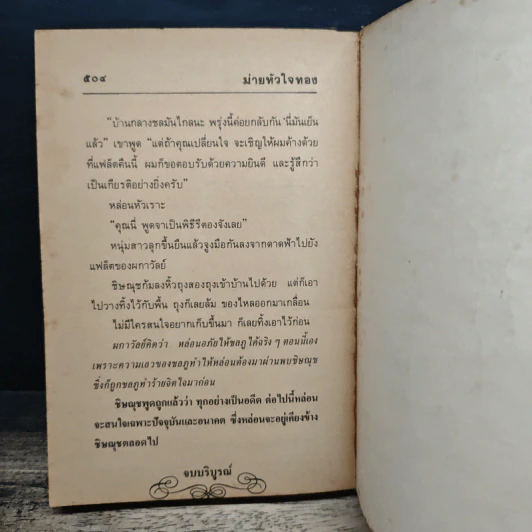 ๕๐๔ ม่ายหัวใจทอง
"บ้านกลางชลมันไกลนะ พรุ่งนี้ค่อยกลับกัน นี่มันเย็น
แล้ว" เขาพูด "แต่ถ้าคุณเปลี่ยนใจ จะเชิญให้ผมค้างด้วย
ที่แฟล็ตคืนนี้ ผมก็ขอตอบรับด้วยความยินดี และรู้สึกว่า
เป็นเกียรติอย่างยิ่งครับ"
หล่อนหัวเราะ
"คุณนี่ พูดจาเป็นพิธีรีตองจังเลย"
หนุ่มสาวลุกขึ้นยืนแล้วจูงมือกันลงจากดาดฟ้าไปยัง
แฟล็ตของผกาวัลย์
ชิษณุชก้มลงหิ้วถุงสองถุงเข้าบ้านไปด้วย แต่ก็เอา
ไปวางทิ้งไว้กับพื้น ถุงก็เลยล้ม ของไหลออกมาเกลื่อน
ไม่มีใครสนใจอยากเก็บขึ้นมา ก็เลยทิ้งเอาไว้ก่อน
ผกาวัลย์คิดว่า หล่อนอภัยให้ชลภูได้จริง ๆ ตอนนี้เอง
เพราะความเลวของชลภูทำให้หล่อนต้องมาผ่านพบชิษณุช
ซึ่งก็ถูกชลภูทำร้ายจิตใจมาก่อน
ชิษณุชพูดถูกแล้วว่า ทุกอย่างเป็นอดีต ต่อไปนี้หล่อน
จะสนใจเฉพาะปัจจุบันและอนาคต ซึ่งหล่อนจะอยู่เคียงข้าง
ชิษณุชตลอดไป
จบบริบูรณ์